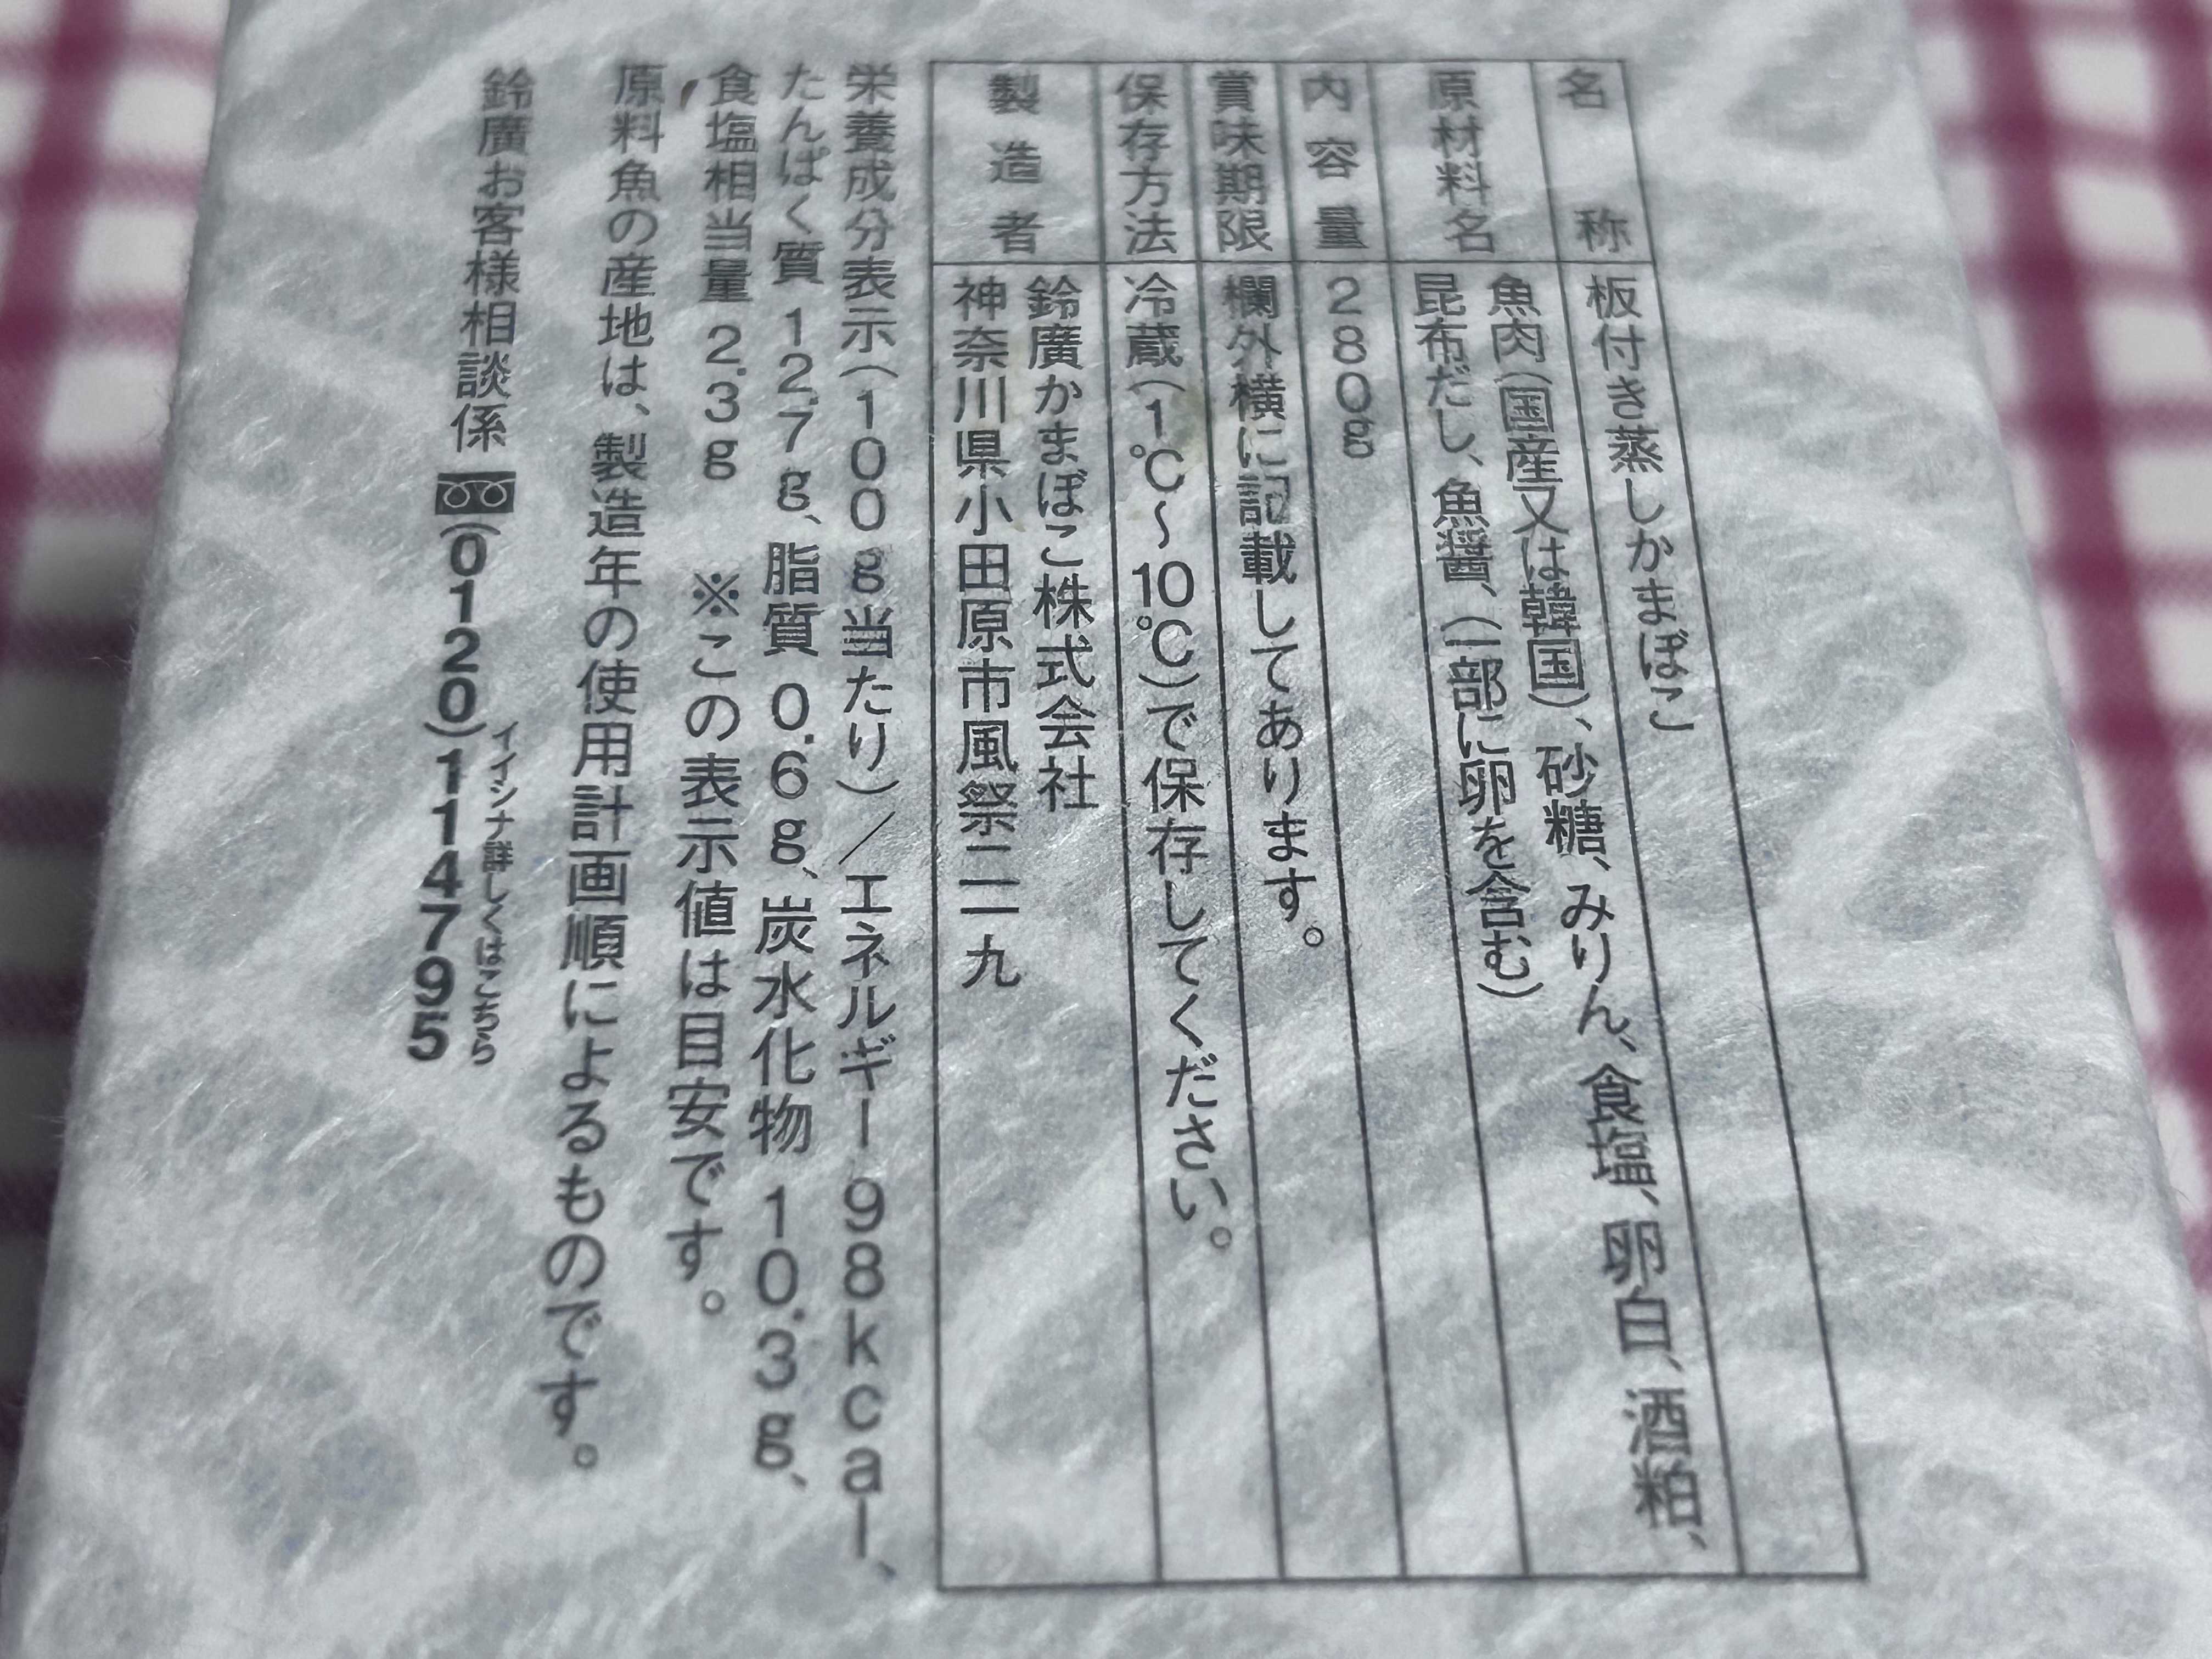 名称 板付き蒸しかまぼこ
原材料名 魚肉(国産又は韓国)、砂糖、みりん、食塩、卵白、酒粕、
昆布だし、魚醤、(一部に卵を含む)
内容量 280g
賞味期限 欄外横に記載してあります。
保存方法 冷蔵(1℃〜10℃)で保存してください。
製造者 鈴廣かまぼこ株式会社
神奈川県小田原市風祭二一九
栄養成分表示(100g当たり)/エネルギー98kcal、
たんぱく質12.7g、脂質0.6g、炭水化物10.3g、
食塩相当量2.3g ※この表示値は目安です。
原料魚の産地は、製造年の使用計画順によるものです。
イイシナ詳しくはこちら
鈴廣お客様相談係 (0120)114795